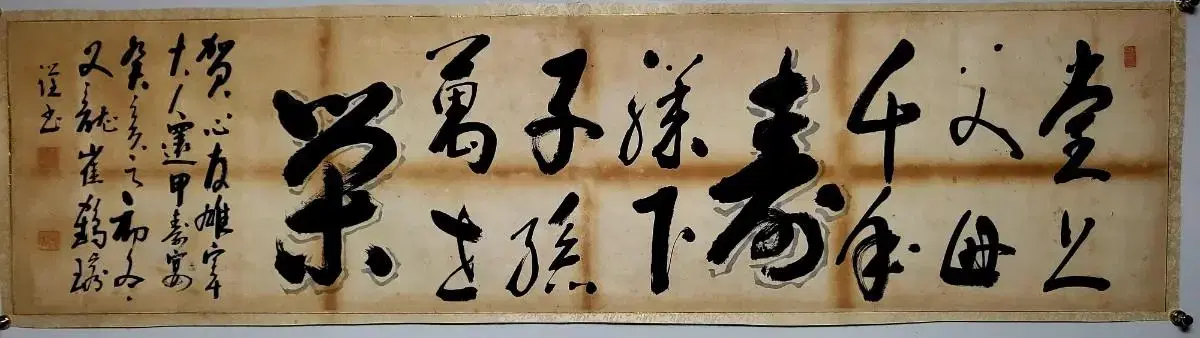 堂上
父母
千年
壽
膝下
子孫
萬世
榮
賀心友雄宰
大人還甲壽宴
癸亥之初
又龍崔鶴
謹書